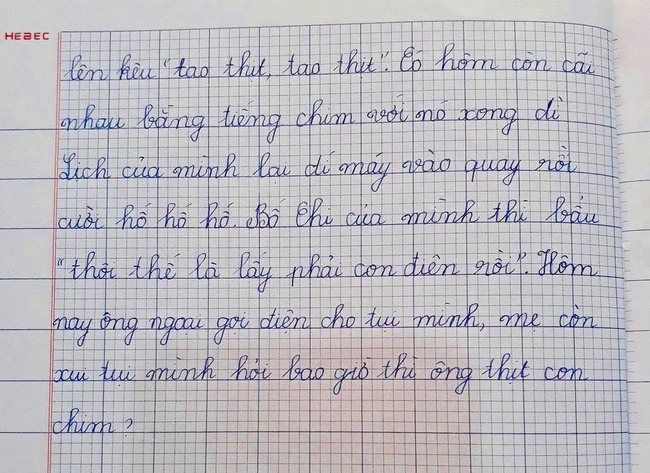 HEBEC
lên kêu "tao thịt, tao thịt". Có hôm còn cãi
nhau bằng tiếng chim với nó xong dì
Lịch của mình lại dí máy vào quay rồi
cười hố hố hố. Bố Chi của mình thì bẩu
"thôi thế là lấy phải con điên rồi". Hôm
nay ông ngoại gọi điện cho tụi mình, mẹ còn
xui tụi mình hỏi bao giờ thì ông thịt con
chim?